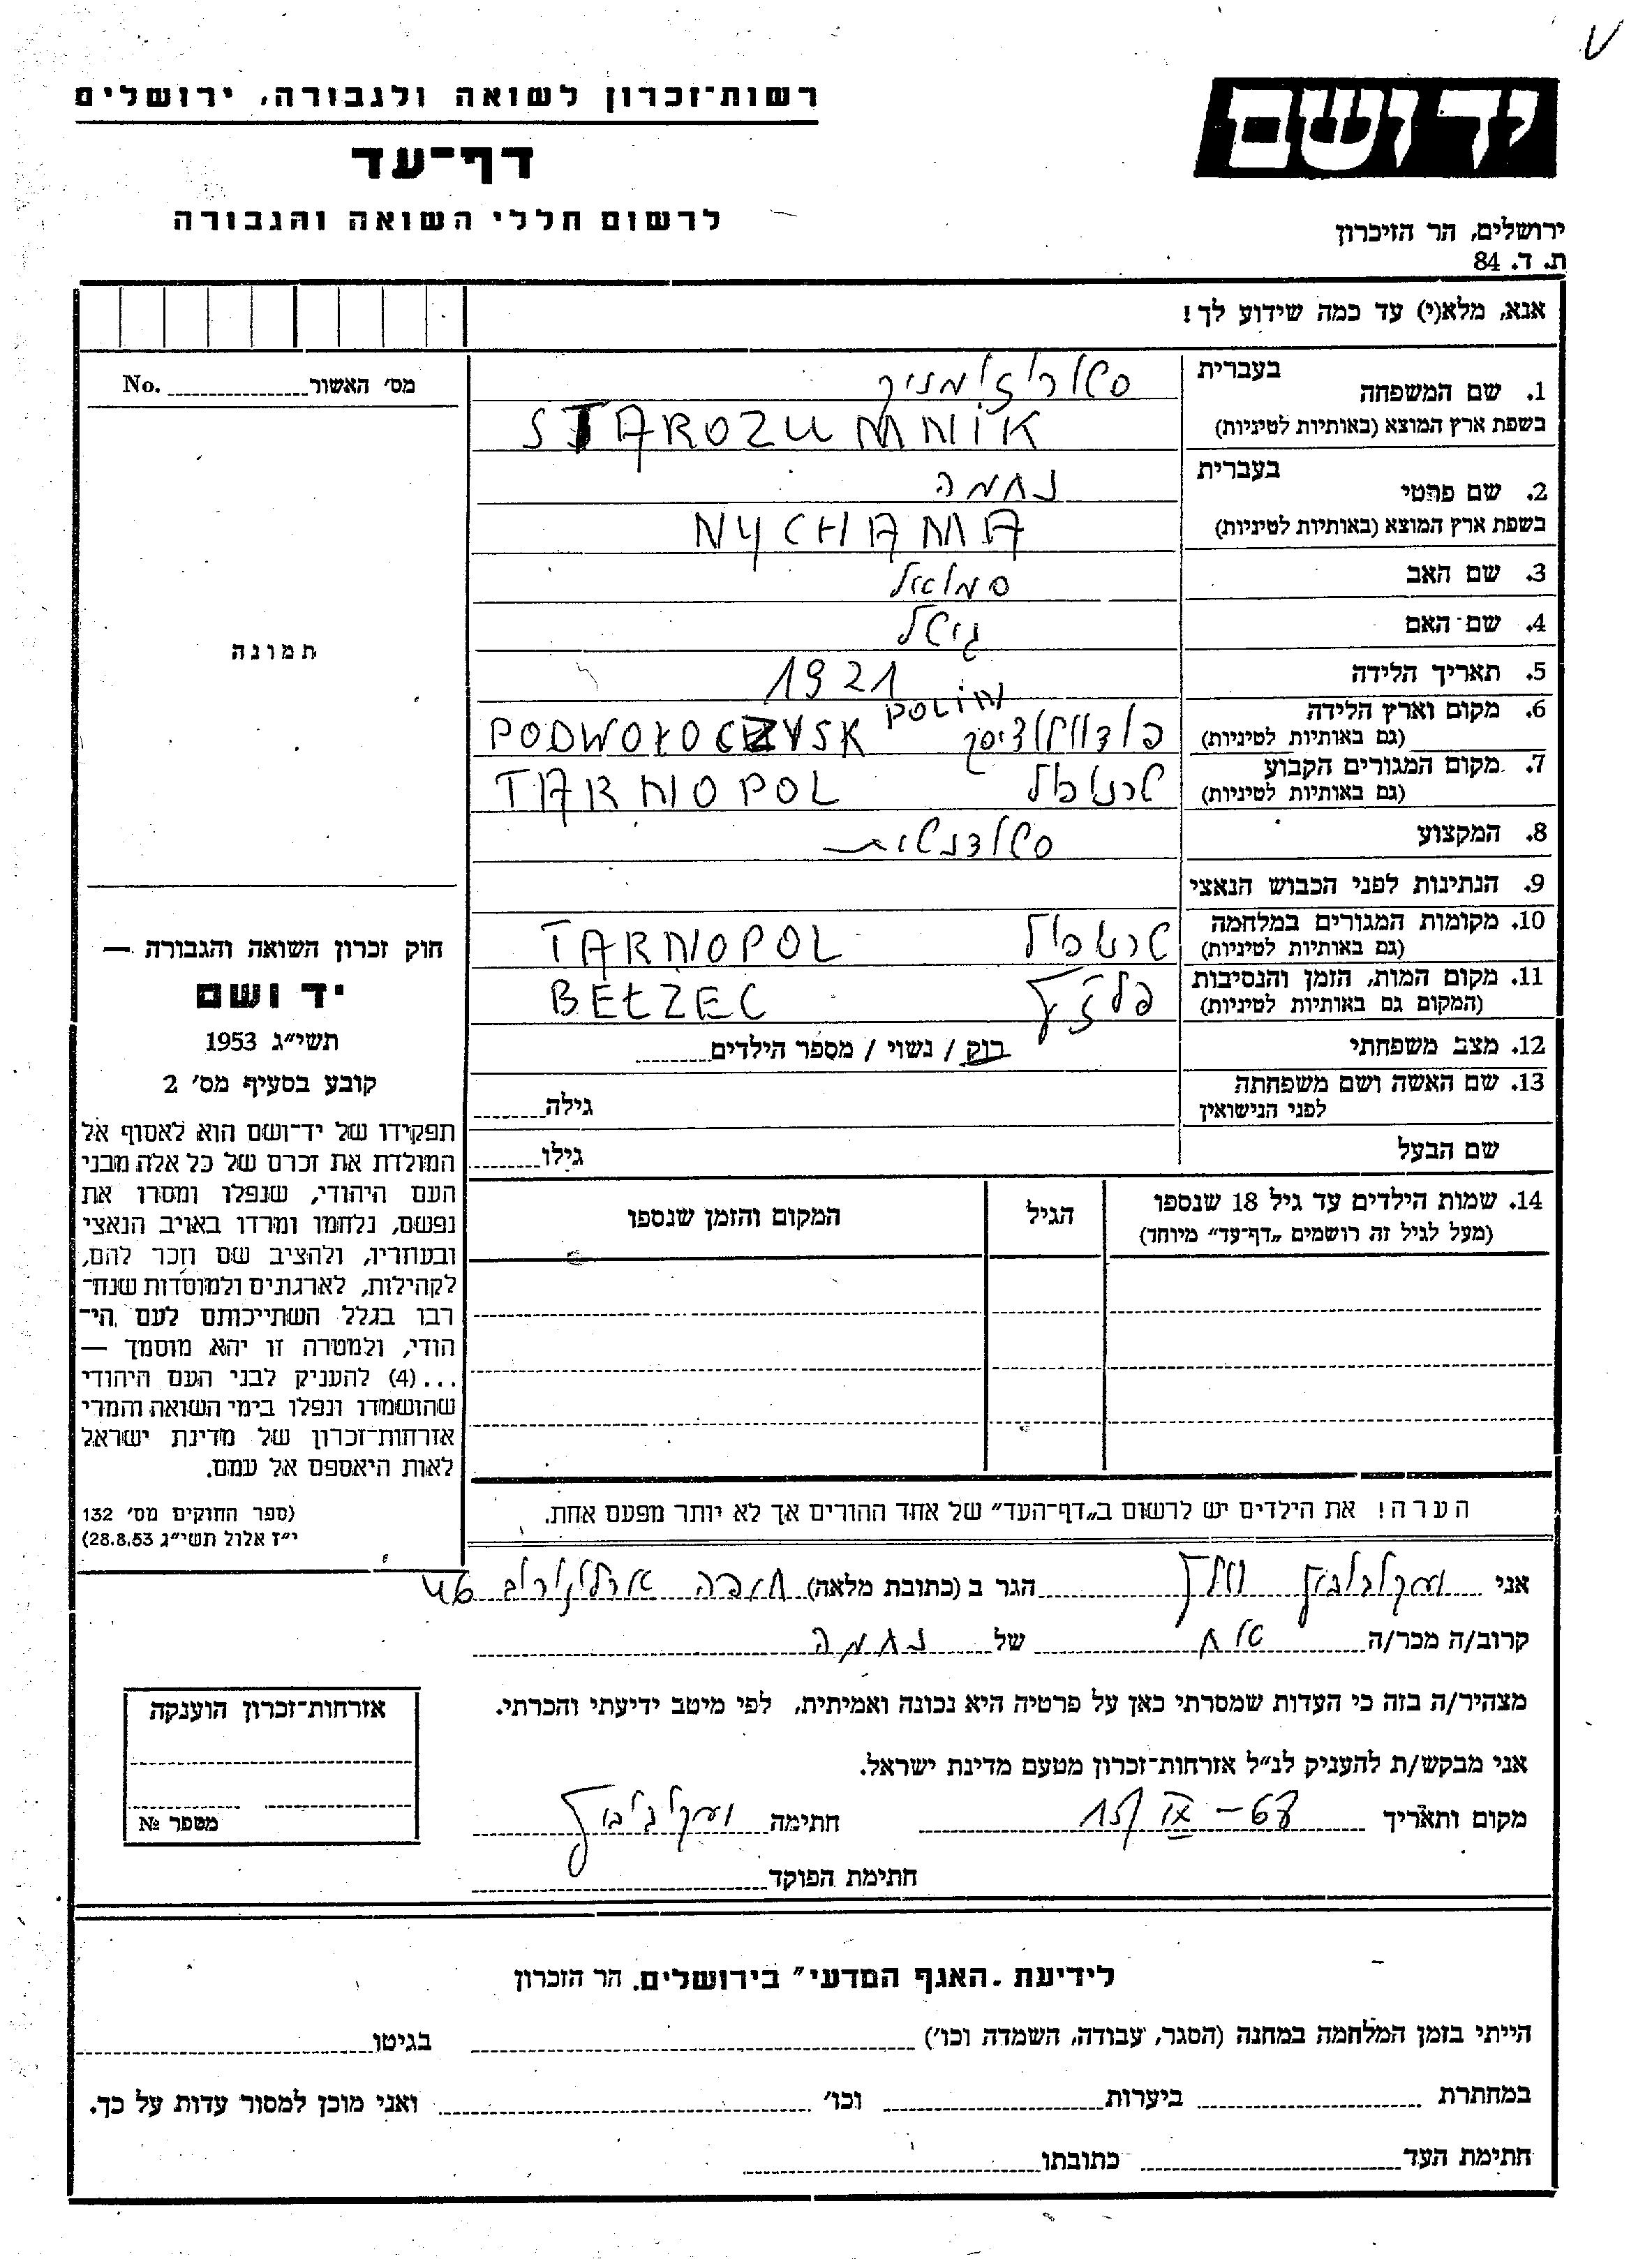 רשות־זכרון לשואה ולגבורה, ירושלים
דף־עד
לרשום חללי השואה והגבורה
יד ושם
ירושלים, הר הזיכרון
ת. ד. 84
אנא, מלא(י) עד כמה שידוע לך!
מס׳ האשור No.
תמונה
חוק זכרון השואה והגבורה —
יד ושם
תשי״ג 1953
קובע בסעיף מס׳ 2
תפקידו של יד־ושם הוא לאסוף אל
המולדת את זכרם של כל אלה מבני
העם היהודי, שנפלו ומסרו את
נפשם, נלחמו ומרדו באויב הנאצי
ובעוזריו, ולהציב שם וזכר להם,
לקהילות, לארגונים ולמוסדות שנח־
רבו בגלל השתייכותם לעם הי־
הודי, ולמטרה זו יהא מוסמך —
...(4) להעניק לבני העם היהודי
שהושמדו ונפלו בימי השואה והמרי
אזרחות־זכרון של מדינת ישראל
לאות היאספם אל עמם.
(ספר החוקים מס׳ 132
י״ז אלול תשי״ג 28.8.53)
1. שם המשפחה
בעברית סטרוזומניק
בשפת ארץ המוצא (באותיות לטיניות) STAROZUMNIK
2. שם פרטי
בעברית נחמה
בשפת ארץ המוצא (באותיות לטיניות) NYCHAMA
3. שם האב סמואל
4. שם האם גיטל
5. תאריך הלידה 1921
6. מקום וארץ הלידה POLIN
(גם באותיות לטיניות) PODWOŁOCZYSK
7. מקום המגורים הקבוע טרנופול
(גם באותיות לטיניות) TARNOPOL
8. המקצוע סטודנטית
9. הנתינות לפני הכבוש הנאצי
10. מקומות המגורים במלחמה טרנופול
(גם באותיות לטיניות) TARNOPOL
11. מקום המות, הזמן והנסיבות בלזץ
(המקום גם באותיות לטיניות) BEŁZEC
12. מצב משפחתי רוק / נשוי / מספר הילדים
13. שם האשה ושם משפחתה גילה
לפני הנישואין
שם הבעל גילו
14. שמות הילדים עד גיל 18 שנספו הגיל המקום והזמן שנספו
(מעל לגיל זה רושמים „דף־עד״ מיוחד)
הערה! את הילדים יש לרשום ב„דף־העד״ של אחד ההורים אך לא יותר מפעם אחת.
אני הגר ב (כתובת מלאה) חיפה ארלוזורוב 46
קרוב/ה מכר/ה של נחמה
מצהיר/ה בזה כי העדות שמסרתי כאן על פרטיה היא נכונה ואמיתית, לפי מיטב ידיעתי והכרתי.
אני מבקש/ת להעניק לנ״ל אזרחות־זכרון מטעם מדינת ישראל.
מקום ותאריך 15/IX-68 חתימה
חתימת הפוקד
אזרחות־זכרון הוענקה
מספר №
לידיעת „האגף המדעי״ בירושלים. הר הזכרון
הייתי בזמן המלחמה במחנה (הסגר, עבודה, השמדה וכו׳) בגיטו
במחתרת ביערות וכו׳ ואני מוכן למסור עדות על כך.
חתימת העד כתובתו